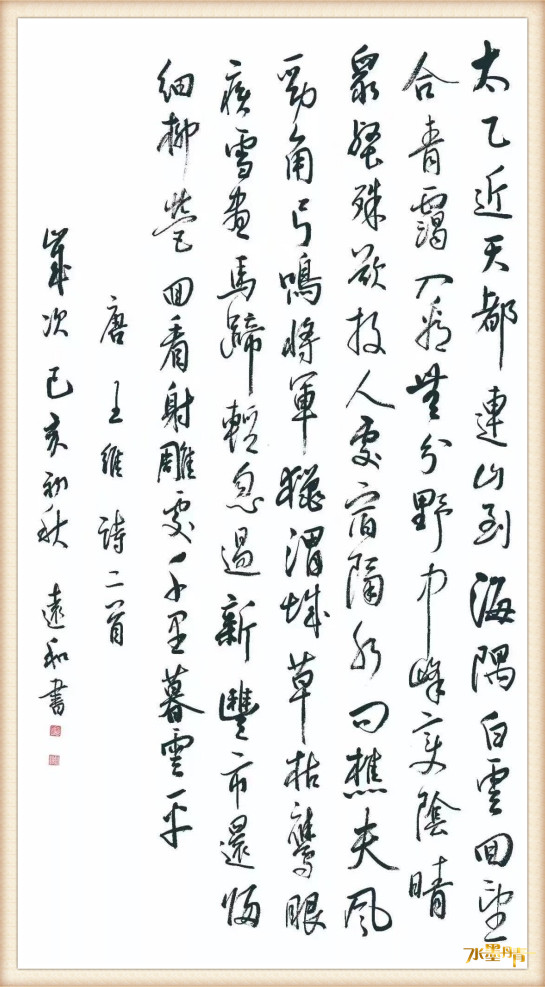 太乙近天都連山到海隅白雲回望
合青靄入看無分野中峰變陰晴
眾壑殊欲投人處宿隔水問樵夫風
勁角弓鳴將軍獵渭城草枯鷹眼
疾雪盡馬蹄輕忽過新豐市還歸
細柳營回看射雕處千里暮雲平
唐王維詩二首
歲次己亥初秋 遠和書
水墨丹青